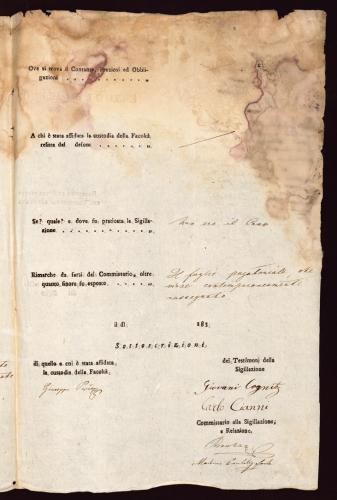 Ove si trova il Contante, Preziosi ed Obbli-
gazioni
A chi è stata affidata la custodia della Facoltà
relitta del defonto
Se? quale? e dove fu praticata la Sigilla-
zione
Non era il Caso
Rimarche da farsi del Commissario, oltre
quanto finora fu esposto
Il foglio
contemporaneamente
rassegnato
il dì 183
Sottoscrizioni
di quello a cui è stata affidata
la custodia della Facoltà
Giuseppe
dei Testimonj della
Sigillazione
Giovani Cognitz
Carlo Cianni
Commissario alla Sigillazione,
e Relazione.